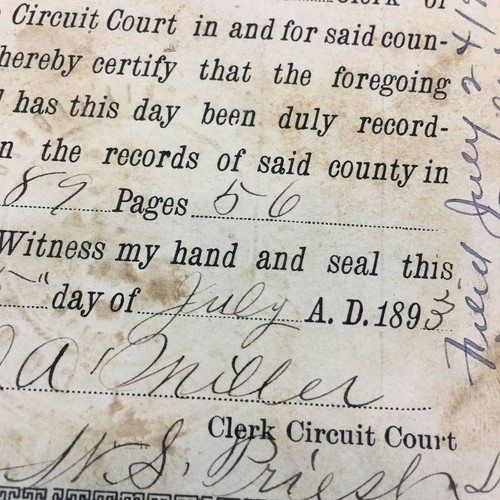 Clerk of
Circuit Court in and for said coun-
hereby certify that the foregoing
has this day been duly record-
the records of said county in
89 Pages 56
Witness my hand and seal this
day of July A. D. 1893
A Miller
Clerk Circuit Court
W. S. Priest
Filed July 24